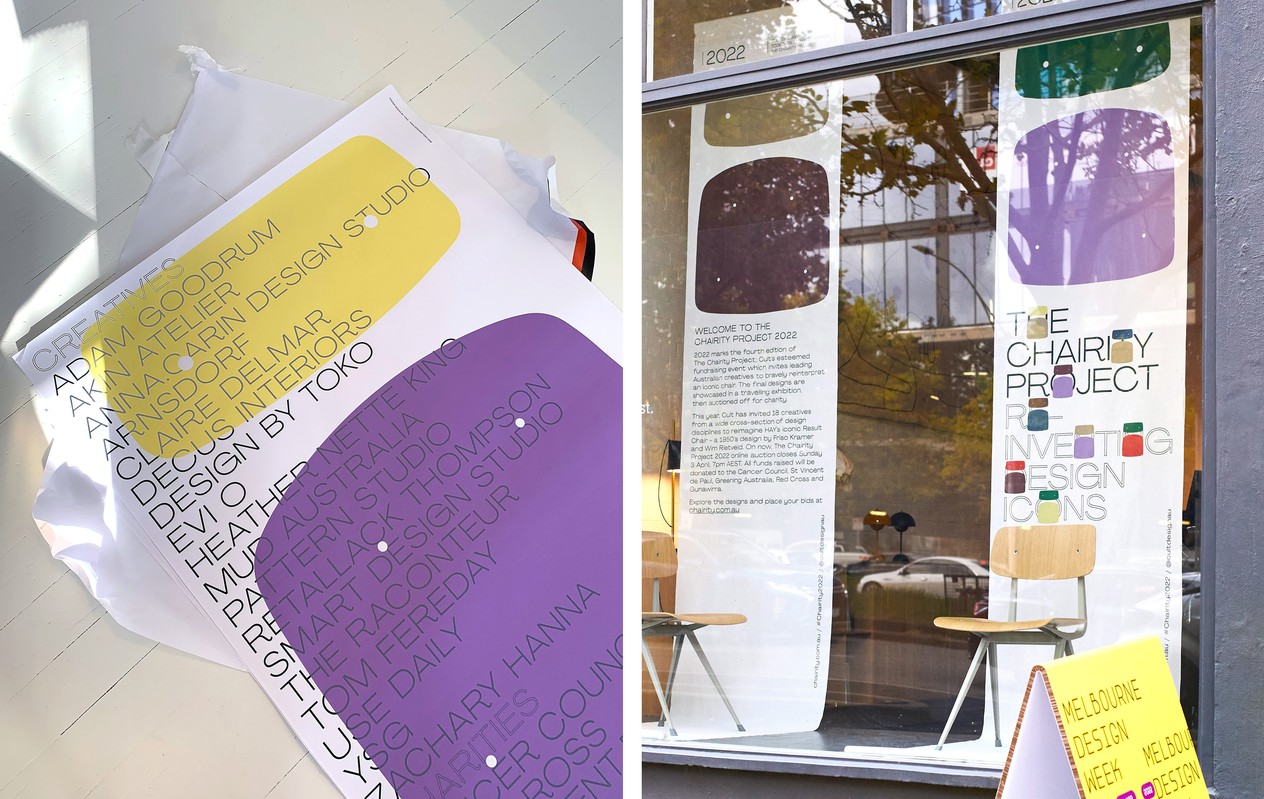 CREATIVES
ADAM GOODRUM
AKIN ATELIER
ANNA CARIN DESIGN STUDIO
ARNSDORF
CLAIRE DELMAR
DECUS INTERIORS
DESIGN BY TOKO
EVI O
HEATHER NETTE KING
MUD AUSTRALIA
PATTERN STUDIO
RETALLACK THOMPSON
SMART DESIGN STUDIO
THE RACONTEUR
TOM FEREDAY
USE DAILY
YSG
ZACHARY HANNA
CHARITIES
CANCER COUNC
CROSS
2022
WELCOME TO THE
CHAIRITY PROJECT 2022
2022 marks the fourth edition of
The Chairity Project; Cult's esteemed
fundraising event which invites leading
Australian creatives to bravely reinterpret
an iconic chair. The final designs are
showcased in a travelling exhibition,
then auctioned off for charity.
This year, Cult has invited 18 creatives
from a wide cross-section of design
disciplines to reimagine HAY's iconic Result
Chair - a 1950's design by Friso Kramer
and Wim Rietveld. On now, The Chairity
Project 2022 online auction closes Sunday
3 April, 7pm AEST. All funds raised will be
donated to the Cancer Council, St Vincent
de Paul, Greening Australia, Red Cross and
Gunawirra.
Explore the designs and place your bids at
chairity.com.au
chairity.com.au / #Chairity2022 / @cultdesignau
THE
CHAIRITY
PROJECT
RE–
INVENTING
DESIGN
ICONS
#Chairity2022 / @cultdesignau
MELBOURNE
DESIGN
WEEK
MELBOU
DESIGN